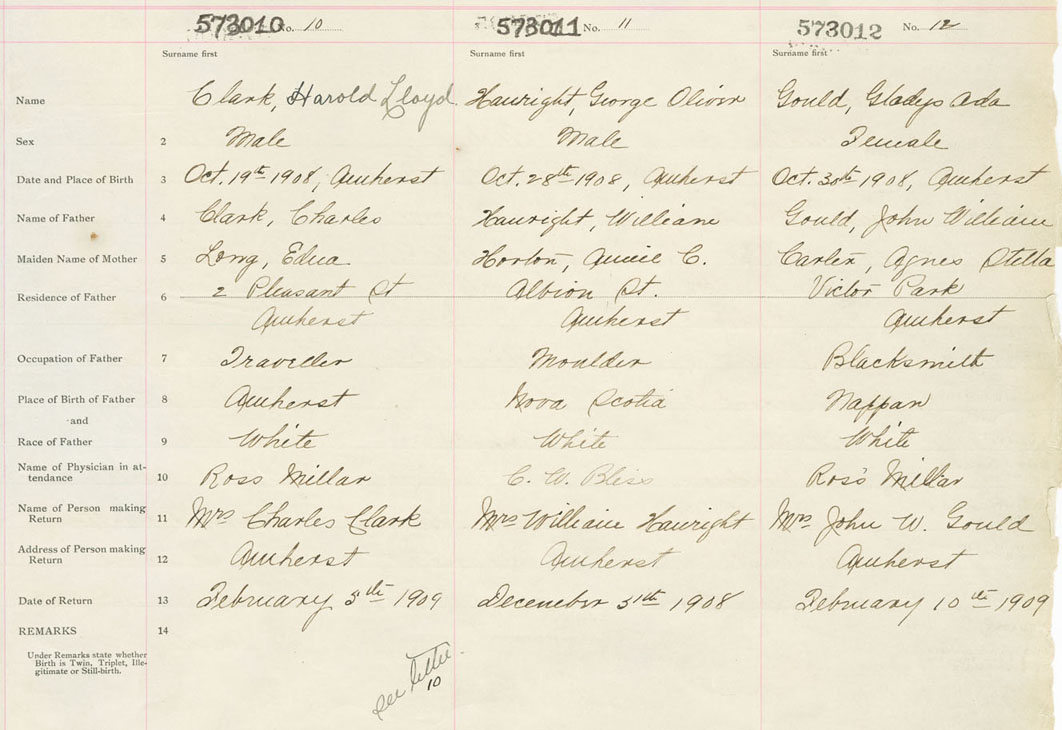 573010 No. 10 573011 No. 11 573012 No. 12
Surname first Surname first Surname first
Name Clark, Harold Lloyd. Hauright, George Oliver Gould, Gladys Ada
Sex 2 Male Male Female
Date and Place of Birth 3 Oct. 19th 1908, Amherst Oct. 28th 1908, Amherst Oct. 30th 1908, Amherst
Name of Father 4 Clark, Charles Hauright, William Gould, John William
Maiden Name of Mother 5 Long, Edna Horton, Annie C. Carter, Agnes Stella
Residence of Father 6 2 Pleasant St Albion St. Victor Park
Amherst Amherst Amherst
Occupation of Father 7 Traveller Moulder Blacksmith
Place of Birth of Father 8 Amherst Nova Scotia Nappan
and
Race of Father 9 White White White
Name of Physician in at-
tendance 10 Ross Millar C. W. Bliss Ross Millar
Name of Person making
Return 11 Mrs Charles Clark Mrs William Hauright Mrs John W. Gould
Address of Person making
Return 12 Amherst Amherst Amherst
Date of Return 13 February 5th 1909 December 31th 1908 February 10th 1909
REMARKS 14
Under Remarks state whether
Birth is Twin, Triplet, Ille-
gitimate or Still-birth.
see letter
10